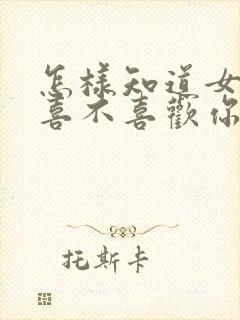 怎樣知道女
喜不喜歡你
托斯卡